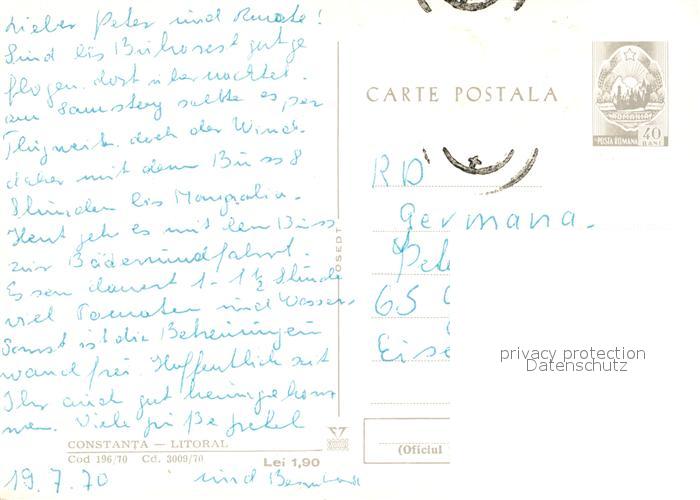 Lieber Peter und Renate!
Sind bis Bukarest gut ge
flogen. dort übernachtet.
am Samstag sollte es per
Flugzeug doch der Wind.
daher mit dem Buss 8
Stunden bis Mangalia.
Heut geht es mit den Buss
zur Bäderrundfahrt.
Essen dauert 1 - 1 1/2 Stunde
viel Tomaten und Wasser
Sonst ist die
wand frei. Hoffentlich seit
Ihr auch gut heimgekom
men. Viele
CONSTANȚA — LITORAL
Cod 196/70 Cd. 3009/70
Lei 1,90
19.7.70 und
OSEDT
CARTE POSTALA
ROMANIA
POSTA ROMANA 40 BANI
RD
Germana.
Pete
65
Eise
(Oficiul
privacy protection
Datenschutz